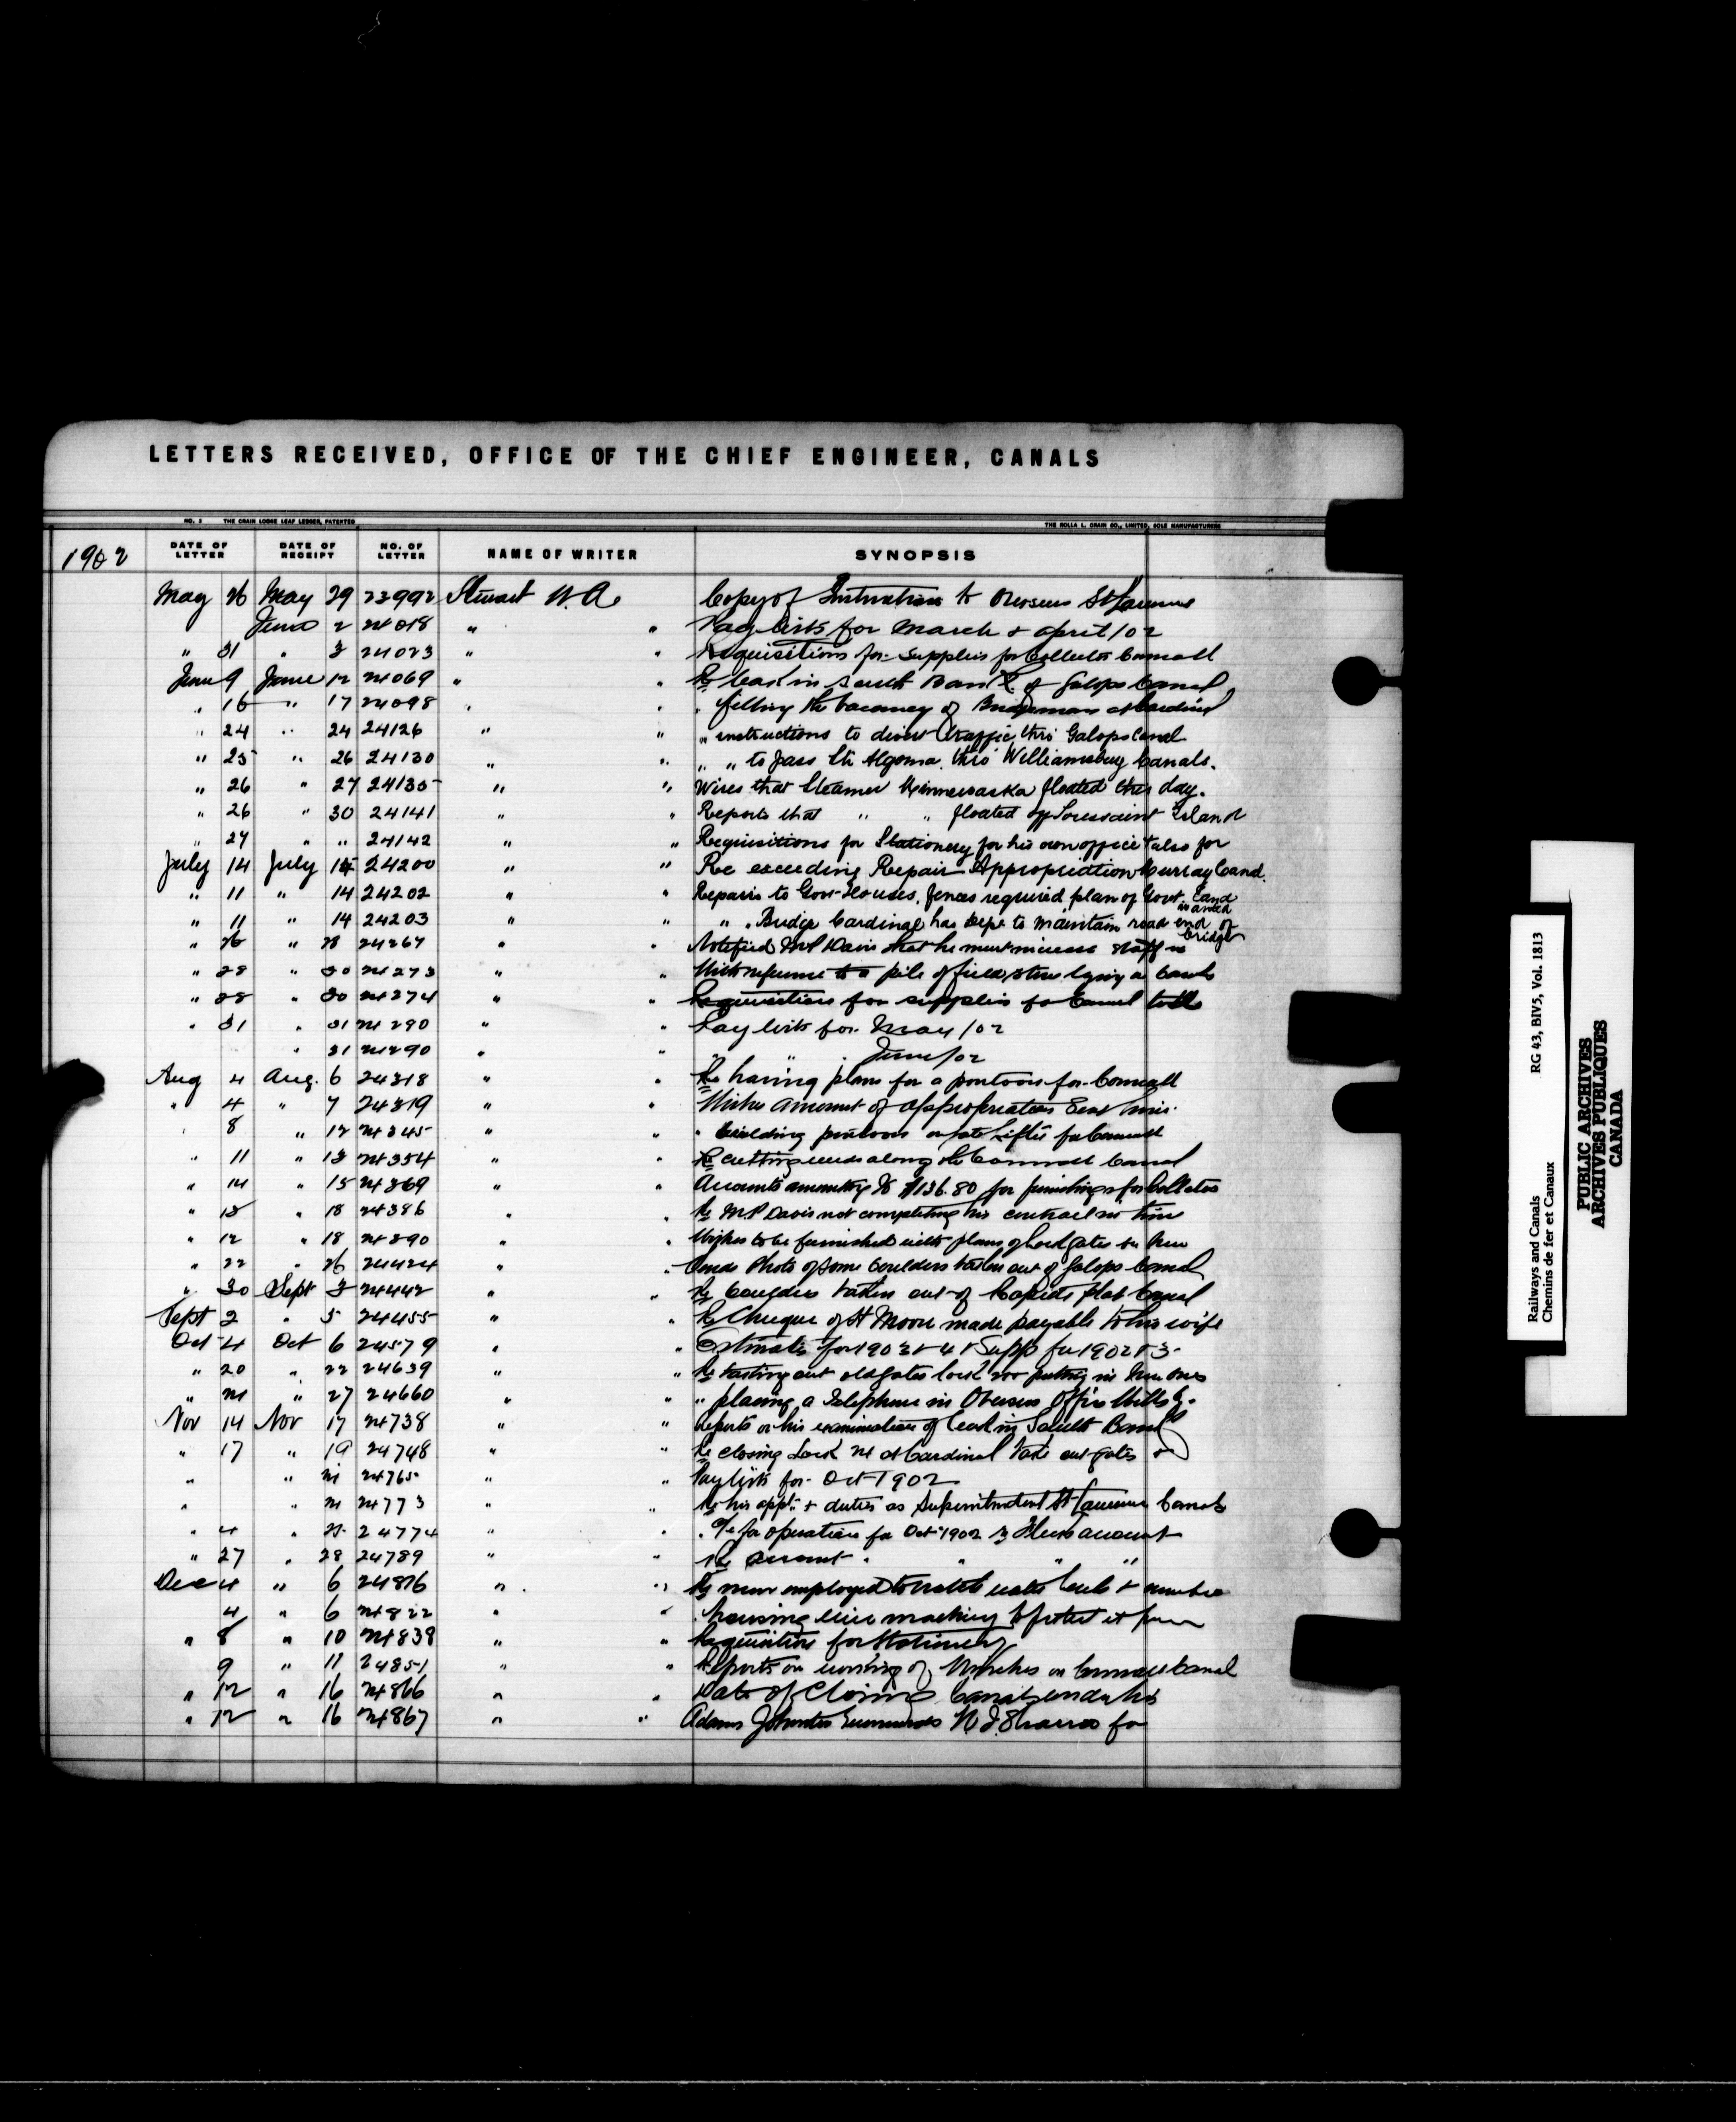 LETTERS RECEIVED, OFFICE OF THE CHIEF ENGINEER, CANALS
NO. 3 THE CRAIN LOOSE LEAF LEDGER, PATENTED
THE ROLLA L. CRAIN CO., LIMITED, SOLE MANUFACTURERS
1902 DATE OF LETTER DATE OF RECEIPT NO. OF LETTER NAME OF WRITER SYNOPSIS
May 26 May 29 23992 Stuart W.A. Copy of Instruction to Overseers St Lawrence
June 2 24018 " " Pay lists for March & April/02
" 31 " 3 24023 " " Requisitions for supplies for Collector Cornwall
June 9 June 12 24069 " " Re leak in South Bank of Galops Canal
" 16 " 17 24098 " " " filling the vacancy of Bridgeman at Cardinal
" 24 " 24 24126 " " " instructions to divert traffic thro' Galops Canal
" 25 " 26 24130 " " " " to pass Str Algoma thro' Williamsburg Canals.
" 26 " 27 24135 " " Wires that Steamer Minnewaska floated this day.
" 26 " 30 24141 " " Reports that " " floated off Toussaint Island
" 27 " " 24142 " " Requisitions for Stationery for his own office & also for
July 14 July 15 24200 " " Re exceeding Repair Appropriation Murray Canal.
" 11 " 14 24202 " " Repairs to Govt Houses, fences required, plan of Govt. Land wanted
" 11 " 14 24203 " " " . Bridge Cardinal has Dept to maintain road end of bridge
" 26 " 28 24267 " " Notified M P Davis that he must increase staff
" 28 " 30 24273 " " With reference to a pile of field stone lying on Canals
" 28 " 30 24274 " " Requisitions for supplies for Canal tolls
" 31 " 31 24290 " " Pay lists for May/02
" 31 24290 " " " " June/02
Aug 4 Aug. 6 24318 " " Re having plans for a pontoon for Cornwall
" 4 " 7 24319 " " Wishes amount of appropriation
" 8 " 12 24345 " " " building pontoon or gate lifter for Cornwall
" 11 " 13 24354 " " Re cutting weeds along the Cornwall Canal
" 14 " 15 24369 " " Accounts amounting to $136.80 for furnishings for Collectors
" 15 " 18 24386 " " Re M P Davis not completing his contract in time
" 12 " 18 24390 " " Wishes to be furnished with plans of lock gates
" 22 " 26 24424 " " Sends Photo of some boulders taken out of Galops Canal
" 30 Sept 3 24442 " " Re boulders taken out of Rapide Plat Canal
Sept 2 " 5 24455 " " Re Cheque of H Moore made payable to his wife
Oct 4 Oct 6 24579 " " Estimates for 1903 & 4 & Supp for 1902 & 3
" 20 " 22 24639 " " Re taking out old gates lock 200 putting in new ones
" 24 " 27 24660 " " " placing a Telephone in Overseers Office
Nov 14 Nov 17 24738 " " Reports on his examination of leak in South Bank
" 17 " 19 24748 " " Re closing Lock 24 at Cardinal take out gates
" " 21 24765 " " Pay lists for Oct 1902
" " 24773 " " Re his appt & duties as Superintendent St Lawrence Canals
" 4 " 24774 " " for operation for Oct 1902 account
" 27 " 28 24789 " " Re account " " "
Dec 4 " 6 24816 " " Re men employed to
4 " 6 24822 " " housing machinery to protect it from
" 8 " 10 24838 " " Requisition for Stationery
9 " 11 24851 " " Reports on working of Winches on Cornwall Canal
" 12 " 16 24866 " " Date of Closing Canals under his
" 12 " 16 24867 " " Adam Johnston for
Railways and Canals
Chemins de fer et Canaux
RG 43, BIV5, Vol. 1813
PUBLIC ARCHIVES
ARCHIVES PUBLIQUES
CANADA